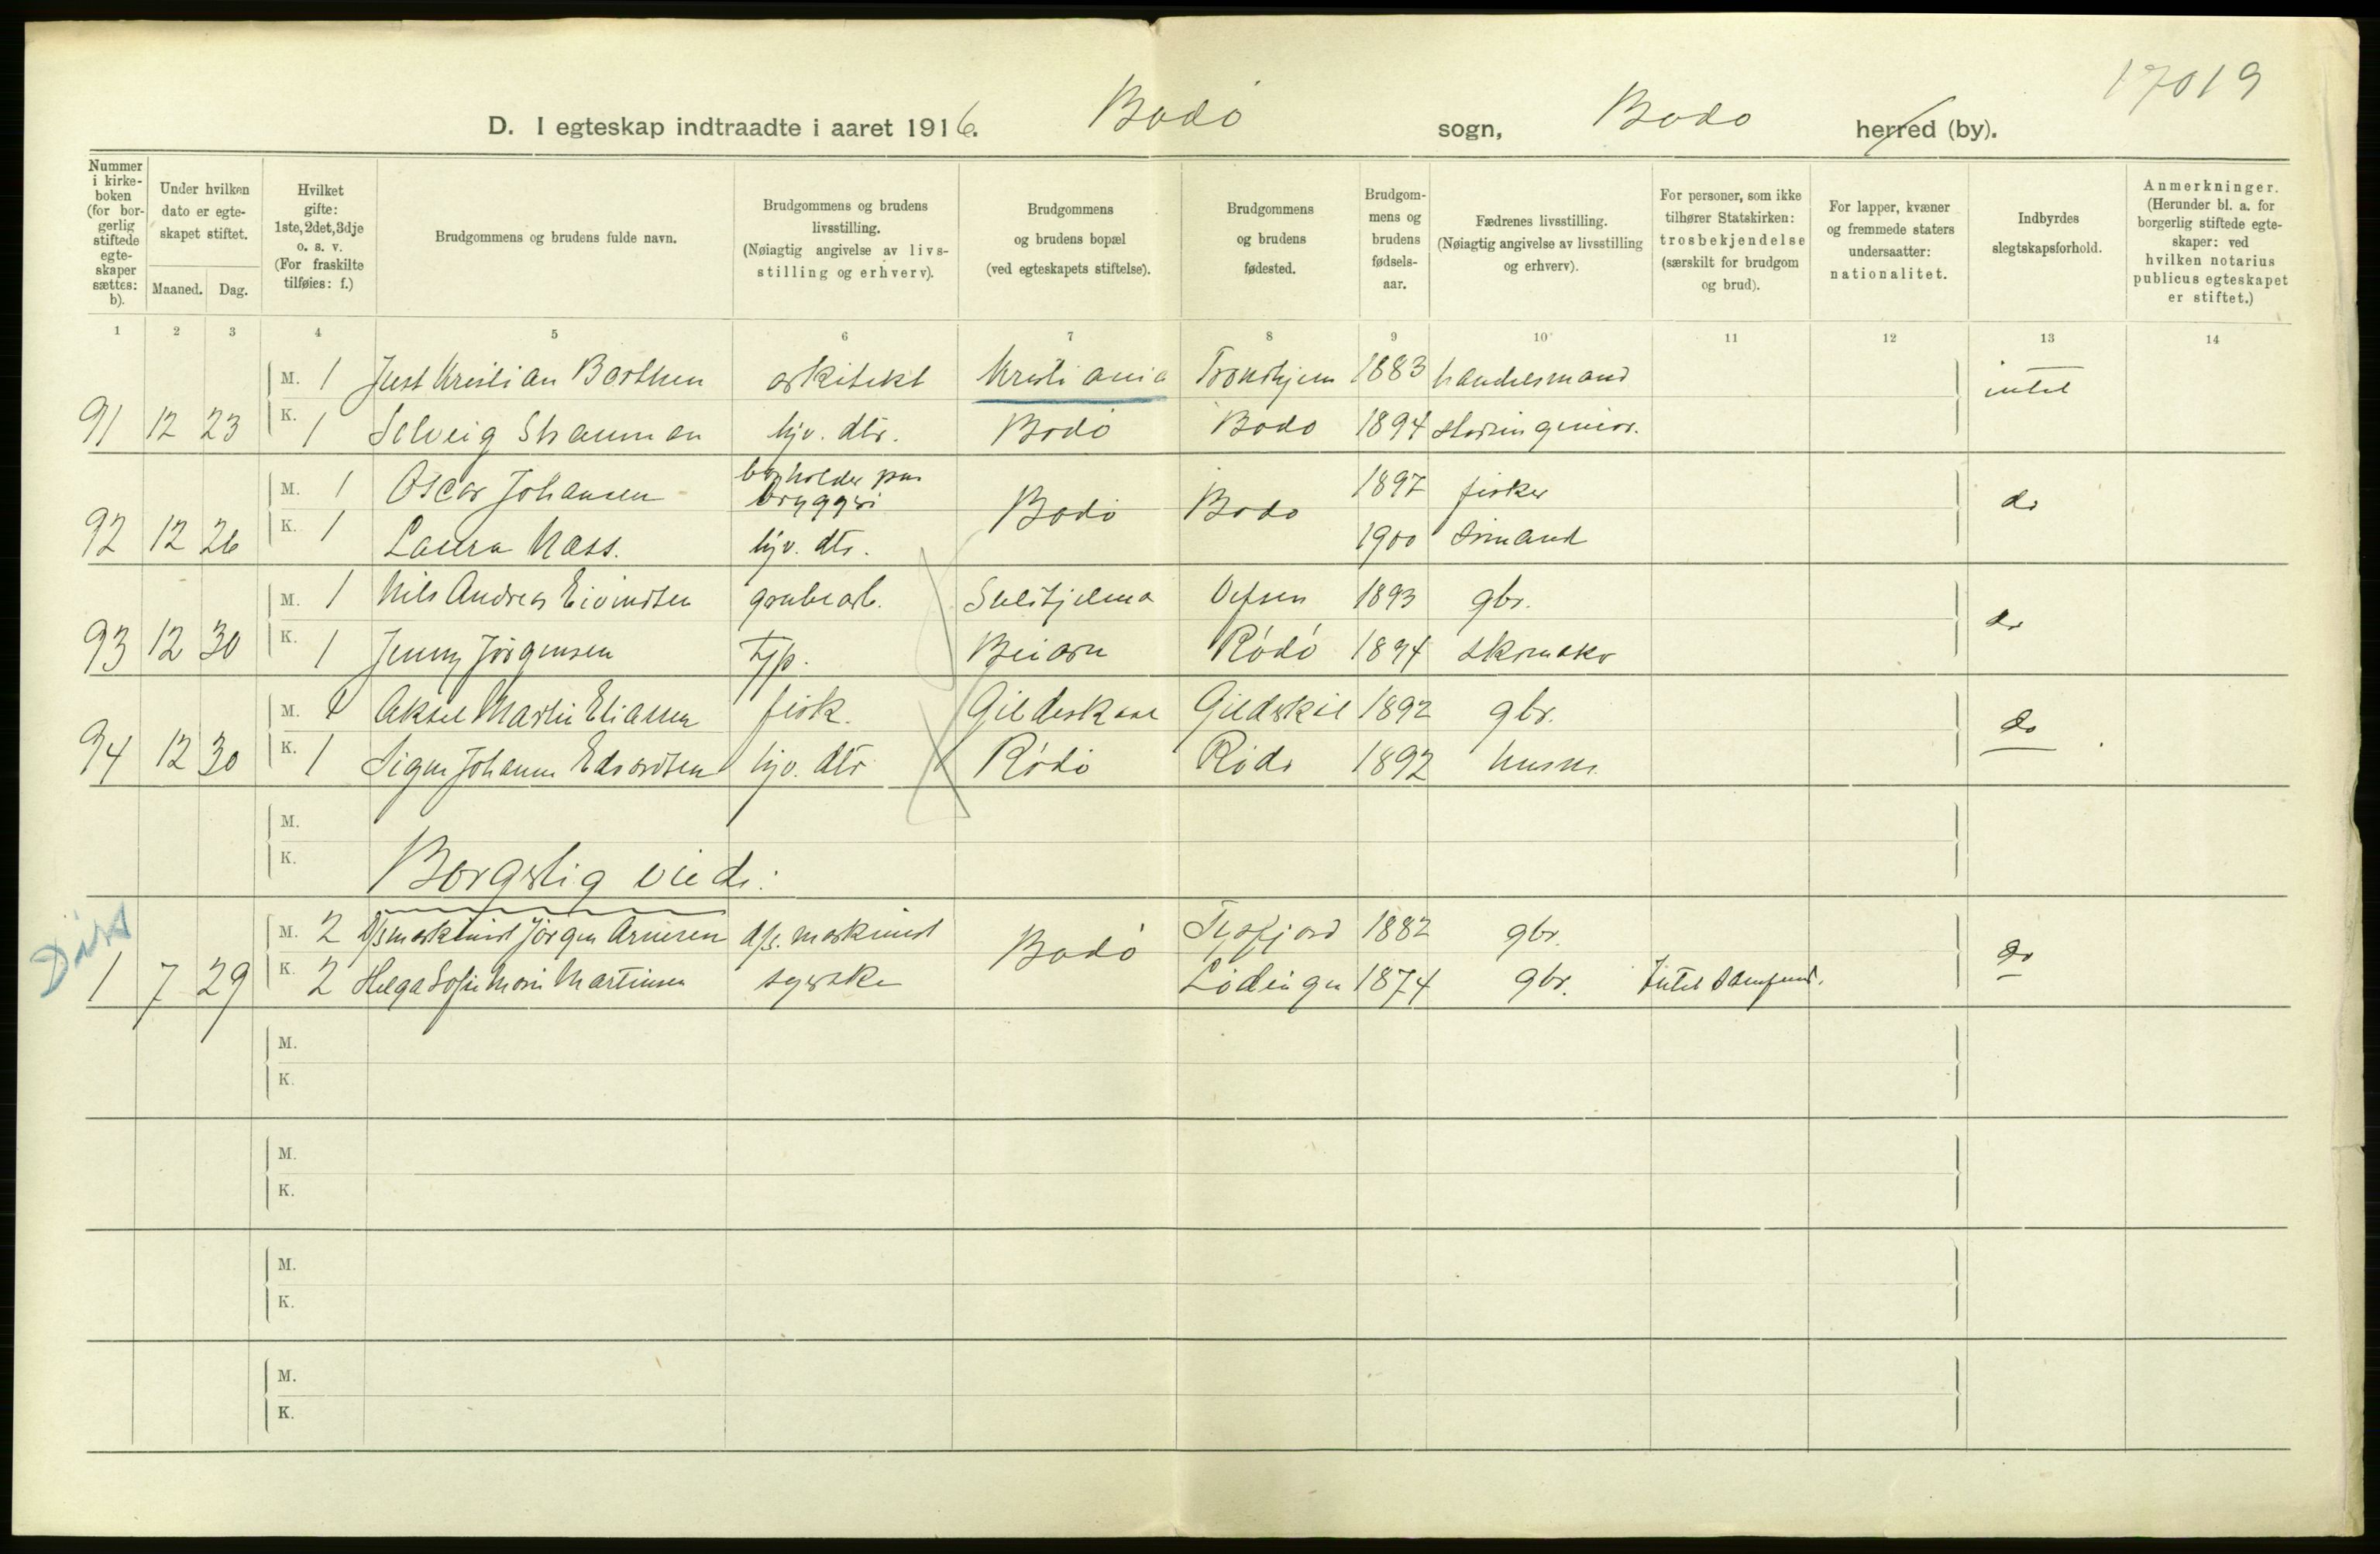 17019
D. I egteskap indtraadte i aaret 1916. Bodø sogn, Bodø herred (by).
Nummer i kirkeboken (for borgerlig stiftede egteskaper sættes: b).
Under hvilken dato er egteskapet stiftet.
Maaned. Dag.
Hvilket gifte: 1ste, 2det, 3dje o. s. v. (For fraskilte tilføies: f.)
Brudgommens og brudens fulde navn.
Brudgommens og brudens livsstilling. (Nøiagtig angivelse av livsstilling og erhverv).
Brudgommens og brudens bopæl (ved egteskapets stiftelse).
Brudgommens og brudens fødested.
Brudgommens og brudens fødselsaar.
Fædrenes livsstilling. (Nøiagtig angivelse av livsstilling og erhverv).
For personer, som ikke tilhører Statskirken: trosbekjendelse (særskilt for brudgom og brud).
For lapper, kvæner og fremmede staters undersaatter: nationalitet.
Indbyrdes slegtskapsforhold.
Anmerkninger. (Herunder bl. a. for borgerlig stiftede egteskaper: ved hvilken notarius publicus egteskapet er stiftet.)
1 2 3 4 5 6 7 8 9 10 11 12 13 14
M. 1 Just Kristian Barthen arkitekt Kristiania Trondhjem 1883 handelsmand intet
91 12 23 K. 1 Solveig hjv. dtr. Bodø Bodø 1894
M. 1 Oscar Johansen paa bryggeri Bodø Bodø 1897 fisker do
92 12 26 K. 1 Laura Næss. hjv. dtr. 1900
M. 1 Nils Andreas Eivindsen grubearb. Sulitjelma Vefsen 1893 gbr. do
93 12 30 K. 1 Jenny Jørgensen Tjp. Beiarn Rødø 1894 skomaker
M. 1 Aksel Martin Eliassen fisk. Gildeskaal Gildeskål 1892 gbr. do
94 12 30 K. 1 Signe Johanne Edvardsen hjv. dtr Rødø Rødø 1892 husm.
M.
K. Borgerlig viede:
M. 2 D/s maskinist Jørgen Arnesen d/s. maskinist Bodø Tysfjord 1882 gbr. do
1 7 29 K. 2 Helga Sofie Marie Martinsen syerske Lødingen 1874 gbr. Intet samfund.
M.
K.
M.
K.
M.
K.
M.
K.